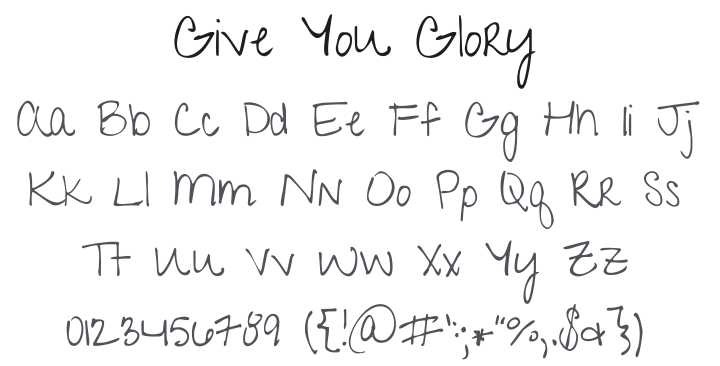 Give You Glory
Aa Bb Cc Dd Ee Ff Gg Hh Ii Jj
Kk Ll Mm Nn Oo Pp Qq Rr Ss
Tt Uu Vv Ww Xx Yy Zz
0123456789 ({!@#':;*"%,.$&})